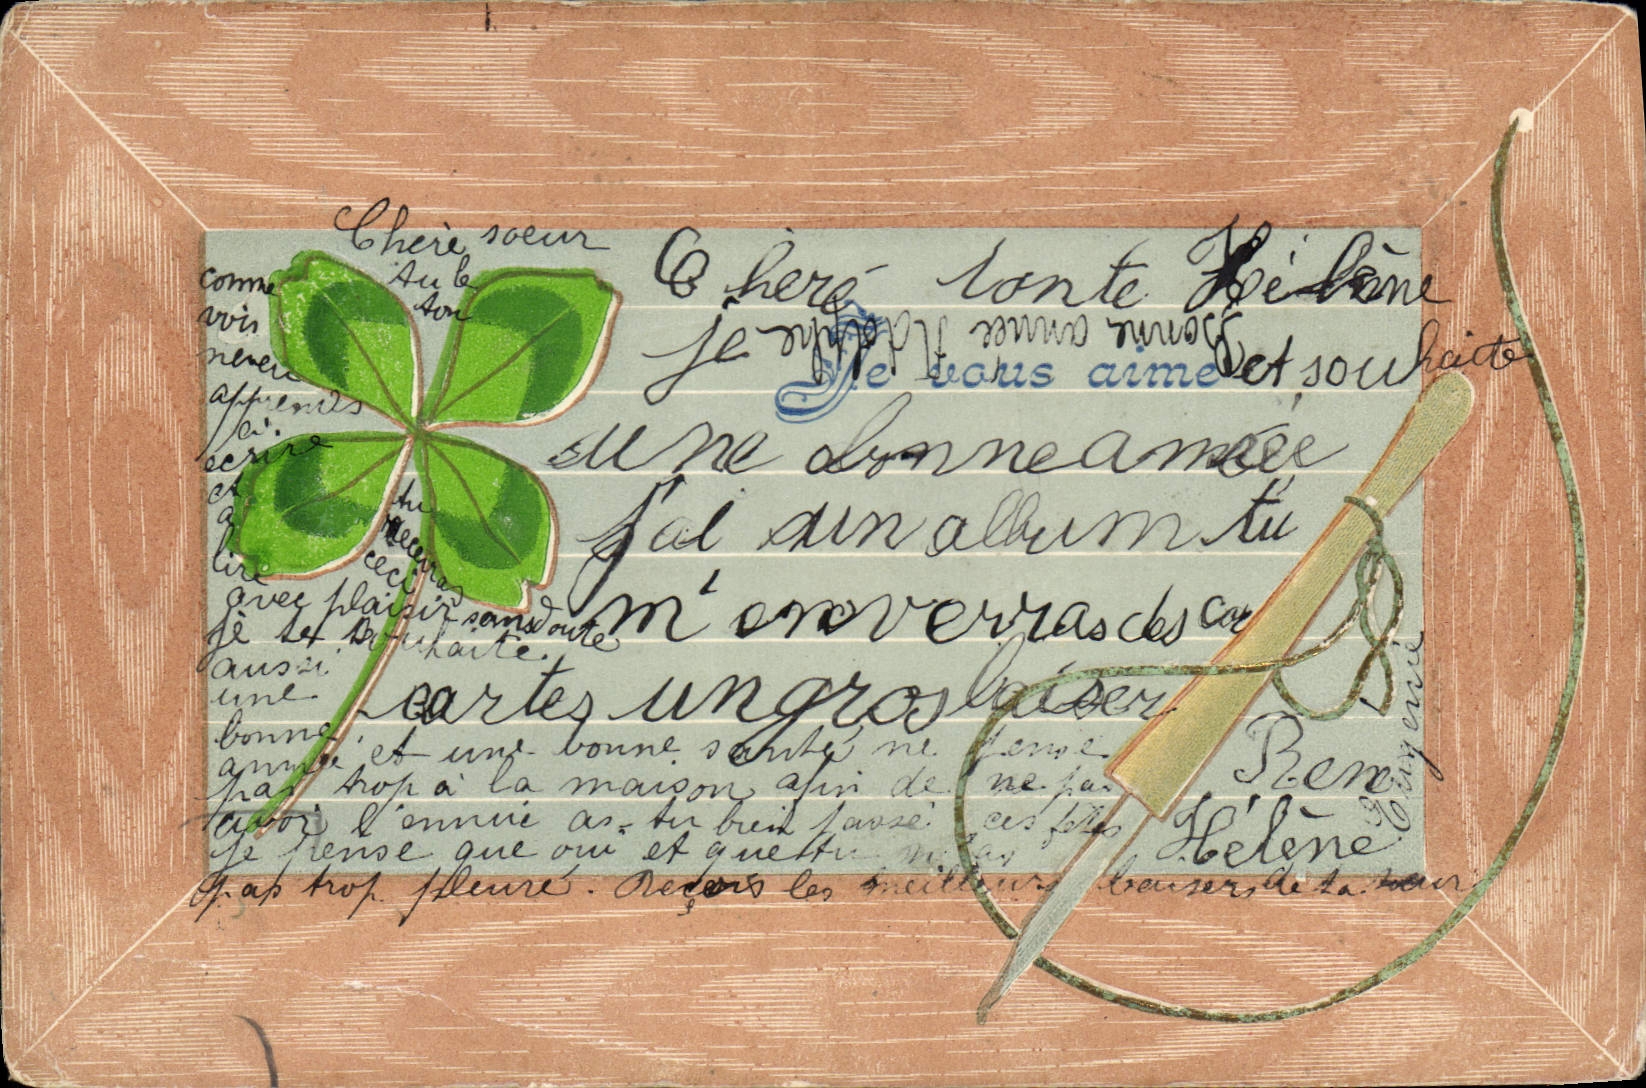 Chère tante Hélène
je
Je vous aime
et souhaite
une bonne année
j'ai un album tu
m'enverras des car
cartes un gros baiser
Hélène
Eugenie
bonne année Adolphe
Chère soeur
comme tu le
vois ton
neveu
apprends
à
écrire
et
à
lire
tu
receveras
ceci
avec plaisir sans doute
je te souhaite
aussi
une
bonne
année et une bonne santé ne pense
pas trop à la maison afin de ne pas
avoir l'ennui as-tu bien passé ces fêtes
je pense que oui et que tu n'as
pas trop pleuré. Reçois les meilleurs baisers de ta soeur